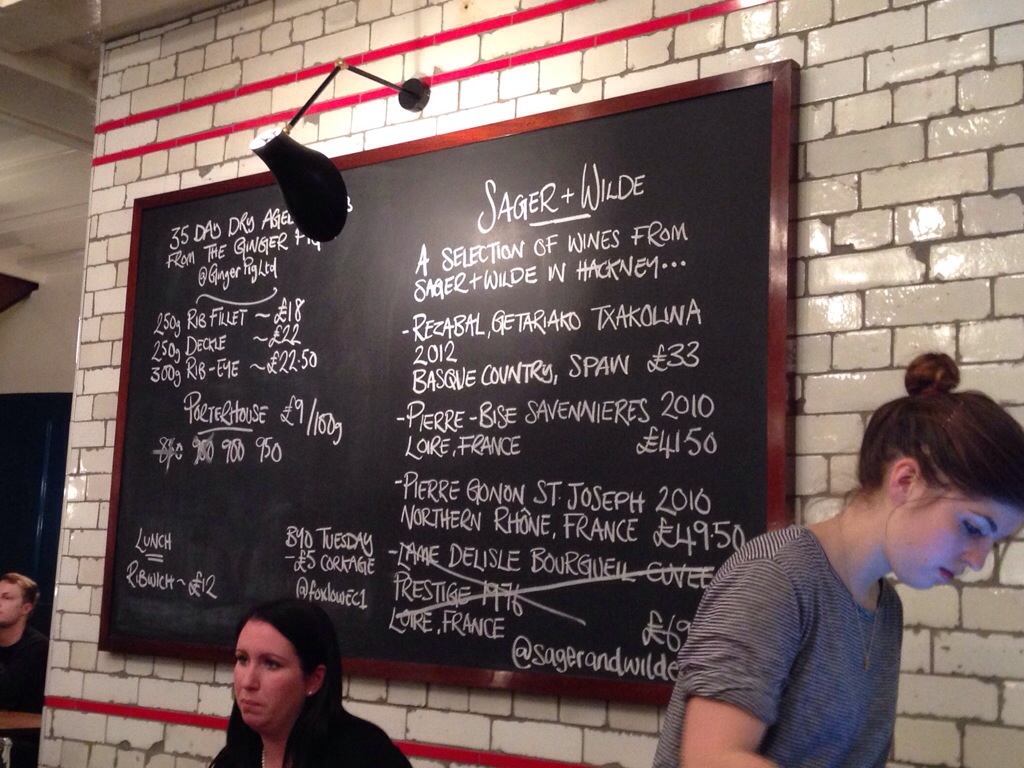 35 DAY DRY AGED
FROM THE GINGER PIG
@GingerPigLtd
250g RIB FILLET ~ £18
250g DECKLE ~ £22
300g RIB-EYE ~ £22.50
PORTERHOUSE £9/100g
900 900 950
LUNCH
RIBWICH ~ £12
BYO TUESDAY
- £5 CORKAGE
@foxlowEC1
SAGER + WILDE
A SELECTION OF WINES FROM
SAGER + WILDE IN HACKNEY...
- REZABAL, GETARIAKO TXAKOLINA
2012
BASQUE COUNTRY, SPAIN £33
- PIERRE-BISE SAVENNIERES 2010
LOIRE, FRANCE £41.50
- PIERRE GONON ST. JOSEPH 2010
NORTHERN RHÔNE, FRANCE £49.50
- LAME DELISLE BOURGUEIL CUVEE
PRESTIGE 1976
LOIRE, FRANCE £69
@sagerandwilde